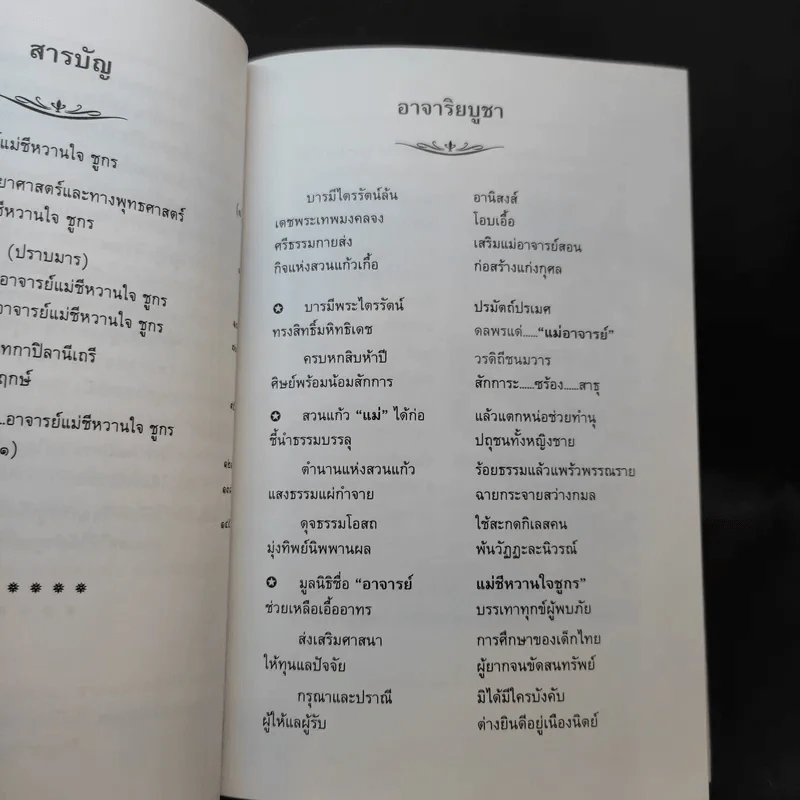 สารบัญ
แม่ชีหวานใจ ชูกร
ยาศาสตร์และทางพุทธศาสตร์
ชีหวานใจ ชูกร
(ปราบมาร)
อาจารย์แม่ชีหวานใจ ชูกร
อาจารย์แม่ชีหวานใจ ชูกร
ทกาปิลานีเถรี
ฤกษ์
...อาจารย์แม่ชีหวานใจ ชูกร
๑)
อาจาริยบูชา
บารมีไตรรัตน์ล้น อานิสงส์
เดชพระเทพมงคลจง โอบเอื้อ
ศรีธรรมกายส่ง เสริมแม่อาจารย์สอน
กิจแห่งสวนแก้วเกื้อ ก่อสร้างแก่งกุศล
✪ บารมีพระไตรรัตน์ ปรมัตถ์ปรเมศ
ทรงสิทธิ์มหิทธิเดช ดลพรแด่......“แม่อาจารย์”
ครบหกสิบห้าปี วรดิถีชนมวาร
ศิษย์พร้อมน้อมสักการ สักการะ......ซร้อง......สาธุ
✪ สวนแก้ว “แม่” ได้ก่อ แล้วแตกหน่อช่วยทำนุ
ชี้นำธรรมบรรลุ ปถุชนทั้งหญิงชาย
ตำนานแห่งสวนแก้ว ร้อยธรรมแล้วแพร้วพรรณราย
แสงธรรมแผ่กำจาย ฉายกระจายสว่างกมล
ดุจธรรมโอสถ ใช้สะกดกิเลสคน
มุ่งทิพย์นิพพานผล พ้นวัฏฏะละนิวรณ์
✪ มูลนิธิชื่อ “อาจารย์ แม่ชีหวานใจชูกร”
ช่วยเหลือเอื้ออาทร บรรเทาทุกข์ผู้พบภัย
ส่งเสริมศาสนา การศึกษาของเด็กไทย
ให้ทุนแลปัจจัย ผู้ยากจนขัดสนทรัพย์
กรุณาและปราณี มิได้มีใครบังคับ
ผู้ให้แลผู้รับ ต่างยินดีอยู่เนืองนิตย์